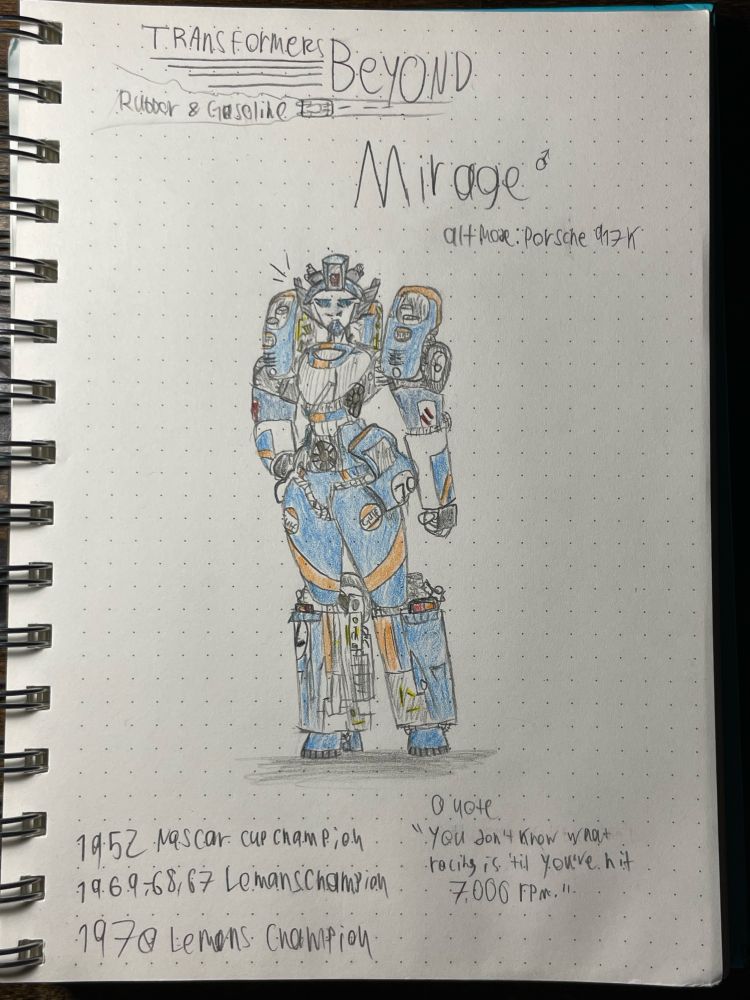 TRANSFORMERS
BEYOND
Rubber & Gasoline
Mirage ♂
alt Mode: Porsche 917K
70
Gulf
1952 Nascar cup champion
1969,-68,67 Lemans Champion
1970 Lemans Champion
Quote
"You don't know what
racing is 'til you've hit
7,000 RPM."